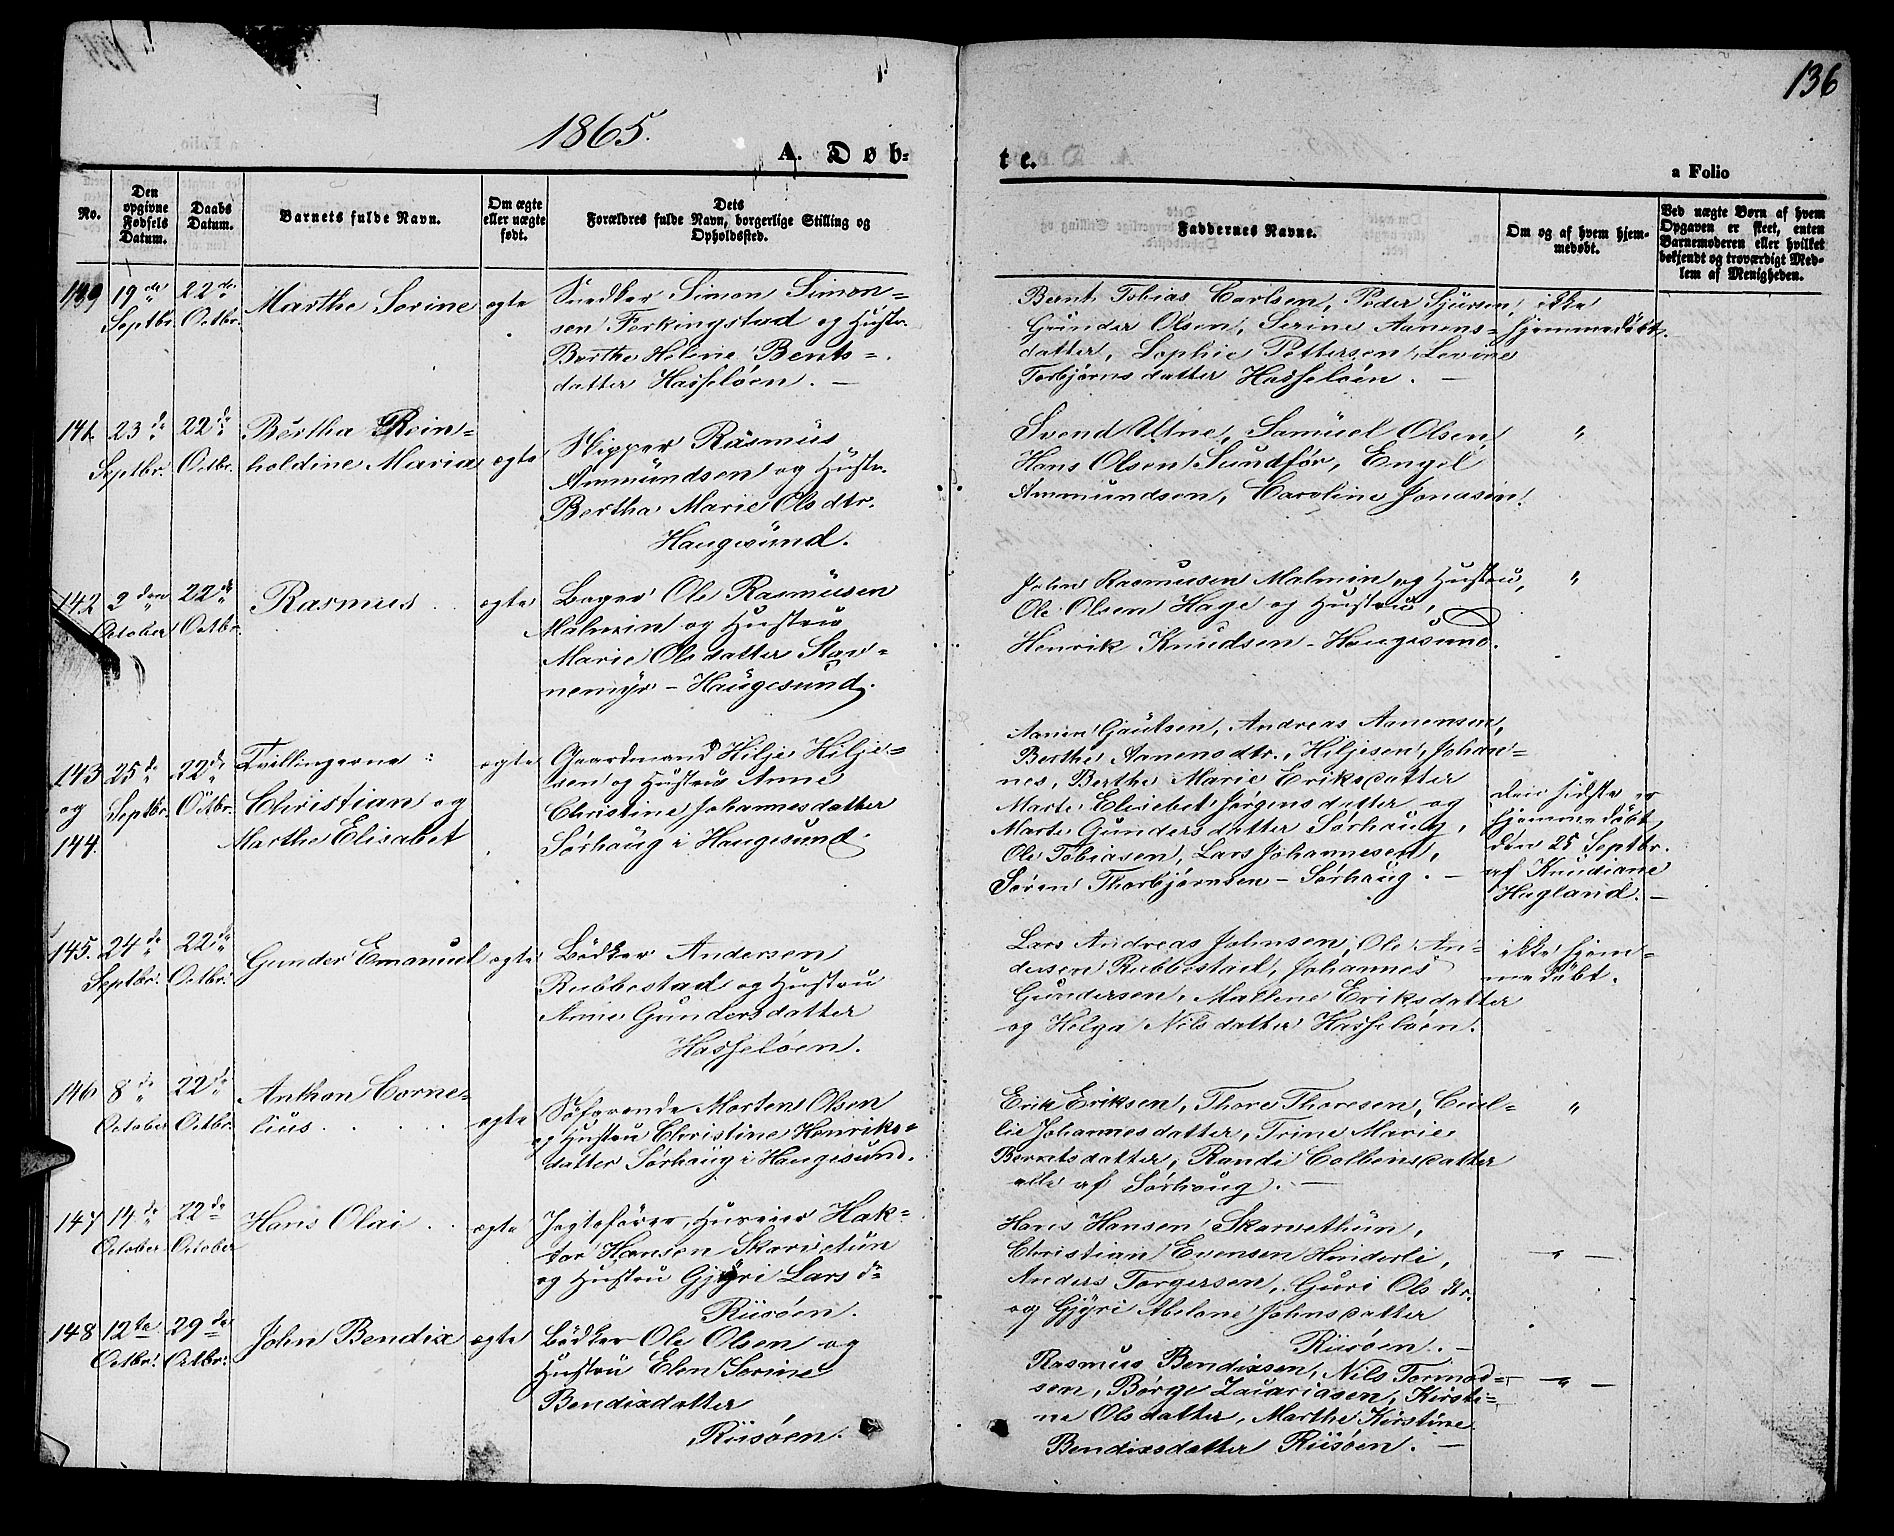 136
1865.
A. Døb-
te.
a Folio
No.
Den opgivne Fødsels Datum.
Daabs Datum.
Barnets fulde Navn.
Om ægte eller uægte født.
Dets Forældres fulde Navn, borgerlige Stilling og Opholdssted.
Faddernes Navne.
Om og af hvem hjemmedøbt.
Ved uægte Børn af hvem Opgaven er skeet, enten Barnemoderen eller hvilket bekjendt og troværdigt Medlem af Menigheden.
19de Septbr. 22de Octbr. Marthe Serine ægte
Snedker Simon Simon-
sen Ferkingstad og Hustr.
Berthe Helene Bents-
datter Hasseløen. —
Bernt Tobias Carlsen, Peder Sjursen,
Gunder Olsen, Serine Aanens-
datter, Sophie Pettersen, Levine
Torbjørnsdatter Hasseløen. —
ikke
hjemmedøbt.
141. 23de Septbr. 22de Octbr. Bertha Rein-
holdine Maria ægte
Skipper Rasmus
Ammundsen og Hustr.
Bertha Marie Olsdtr.
Haugesund.
Svend Utne, Samuel Olsen,
Hans Olsen Sundfør, Engel
Ammundsen, Caroline Jonasen.
"
142 2den October 22de Octbr. Rasmus ægte
Bager Ole Rasmusen
Malmin og Hustru
Marie Olsdatter Stav-
nemyr – Haugesund.
John Rasmusen Malmin og Hustru,
Ole Olsen Hage og Hustru,
Henrik Knudsen – Haugesund.
"
143 og 144. 25de Septbr. 22de Octbr. Tvillingerne:
Christian og
Marthe Elisabet
ægte
Gaardmand Hilje Hilje-
sen og Hustru Anne
Christine Johannesdatter
Sørhaug i Haugesund.
Aanen Gautsen, Andreas Aanensen,
Berthe Aanensdtr., Hiljesen, Johan-
nes, Berthe Marie Eriksdatter
Marte Elisebet Jørgensdatter og
Marte Gundersdatter Sørhaug,
Ole Tobiasen, Lars Johannesen,
Søren Thorbjørnsen – Sørhaug. —
den sidste er
hjemmedøbt
den 25 Septbr.
af Knudiane
Hagland. —
145. 24de Septbr. 22de Octbr. Gunder Emanuel ægte
Bødker Andersen
Rubbestad og Hustru
Anne Gundersdatter
Hasseløen.
Lars Andreas Johnsen, Ole An-
dersen Rubbestad, Johannes
Gundersen, Mallene Eriksdatter
og Helga Nilsdatter Hasseløen.
ikke hjem-
medøbt.
146 8de October 22de Octbr. Anthon Corne-
lius. ægte
Søfarende Morten Olsen
og Hustru Christine Henriks-
datter Sørhaug i Haugesund.
Erik Eriksen, Thore Thoresen, Ceci-
lie Johannesdatter, Trine Marie
Berntsdatter, Randi Colbensdatter
alle af Sørhaug. —
"
147 14de October 22de October Hans Olai ægte
Jagtefører, Huseier Hak-
tor Hansen Skarvetun
og Hustru Gjøri Larsdr
Riisøen.
Hans Hansen Skarvethun,
Christian Evensen Hinderli,
Anders Torgersen, Guri Olsdtr.
og Gjøri Abelone Johnsdatter
Riisøen. —
"
148 12te Octbr. 29de Octbr. John Bendix ægte
Bødker Ole Olsen og
Hustru Elen Serine
Bendixdatter
Riisøen.
Rasmus Bendixsen, Nils Tormod-
sen, Børge Zacariasen, Kirsti-
ne Olsdatter, Marthe Kirstine
Bendixsdatter Riisøen. —
"